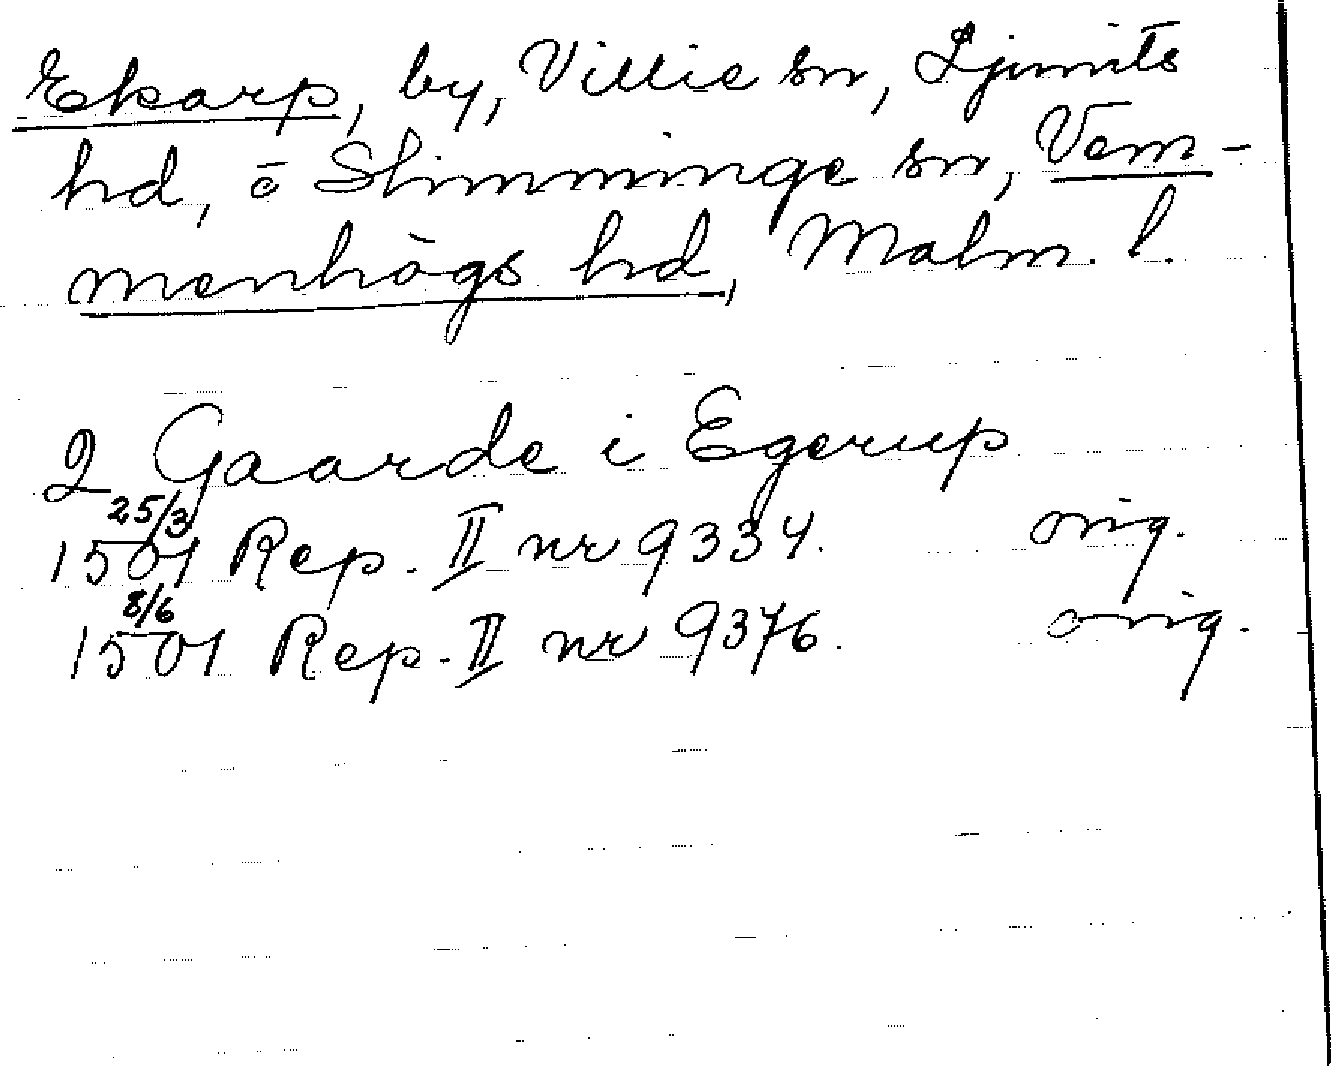 Ekarp, by, Villie sn, Ljunits
hd, ō Slimminge sn, Vem-
menhögs hd, Malm. l.
2 Gaarde i Egerup
25/3
1501 Rep. II nr 9334. orig.
8/6
1501 Rep. II nr 9376. orig.